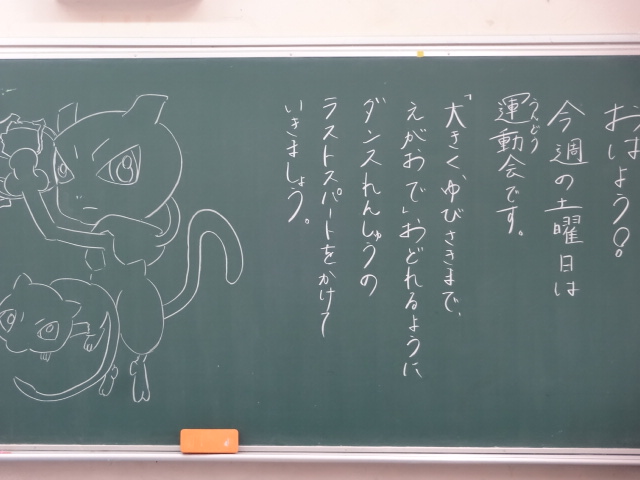 おはよう!
今週の土曜日は
運動会です。
うんどう
「大きく、ゆびさきまで、
えがおで」おどれるように
ダンスれんしゅうの
ラストスパートをかけて
いきましょう。